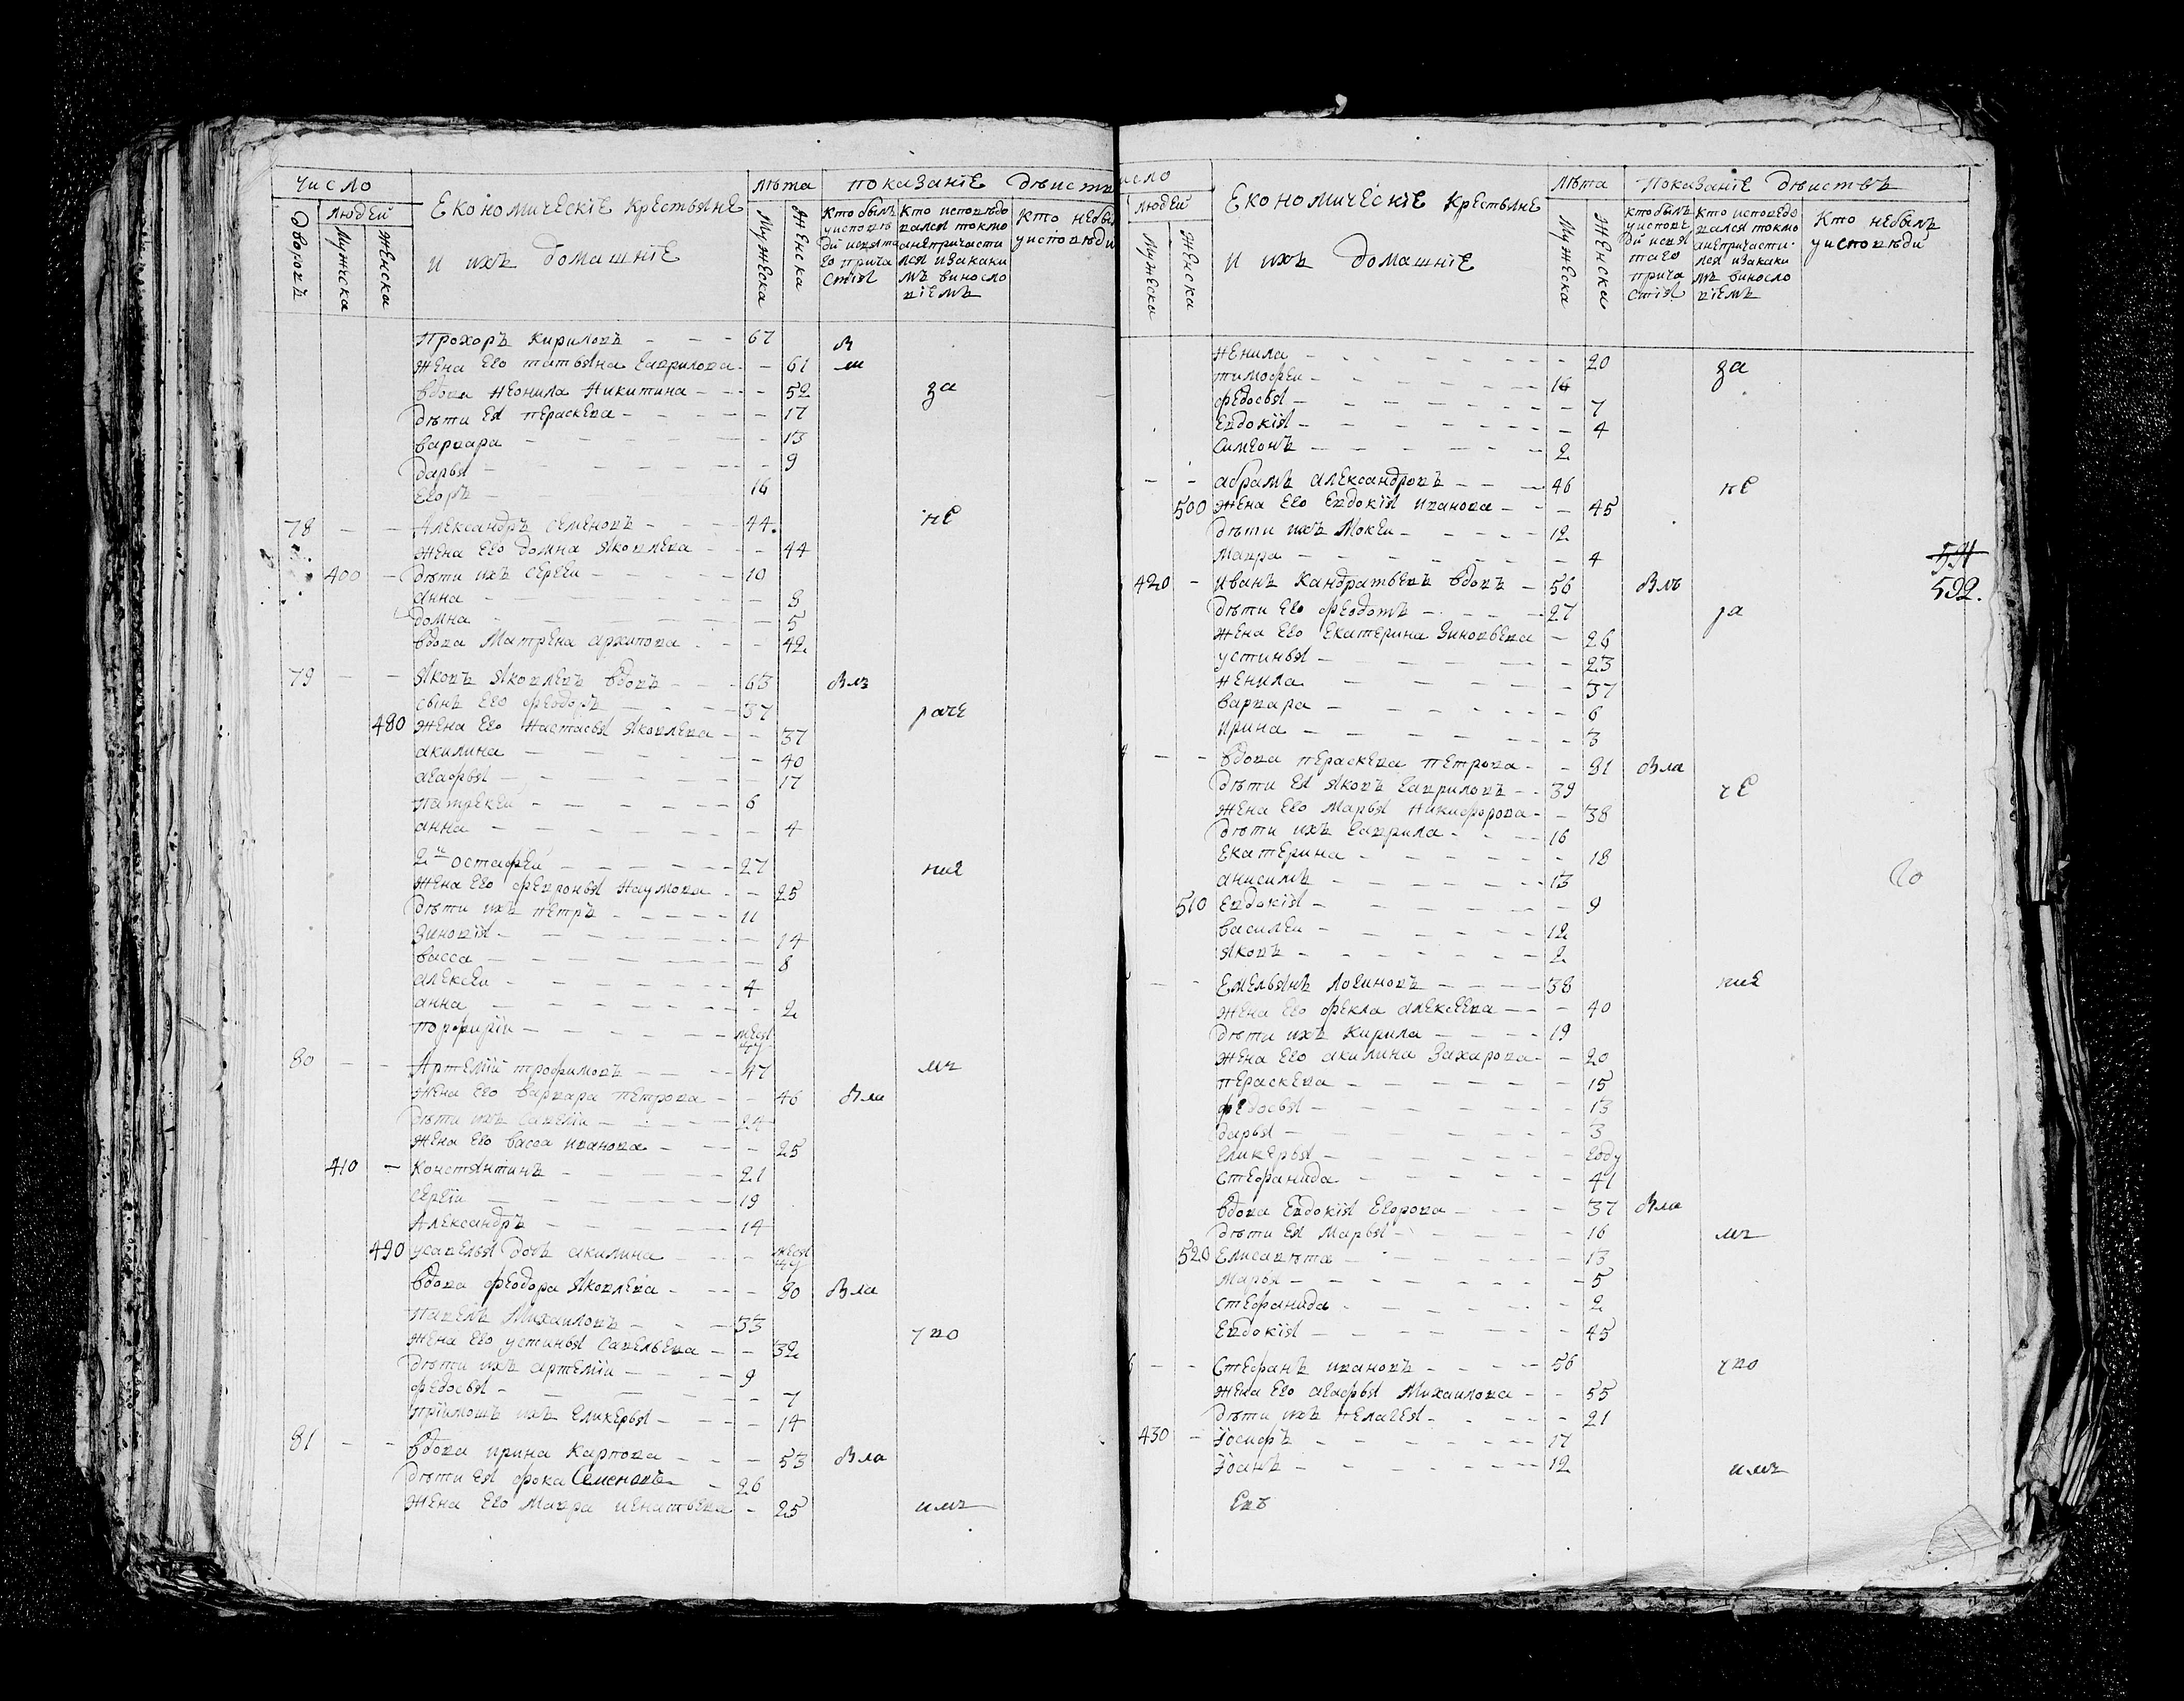 число
Економическіе крестьяне
лѣта
показаніе дѣиств
людей
и ихъ домашніе
дворовъ
мужеска
женска
мужеска
женска
кто былъ у исповѣди и свята го прича стія
кто исповѣдо вался токмо а непричасти лся и за каки мъ винносло віемъ
кто небы у исповѣди
Прохоръ Кириловъ - - - 67
жена его татьяна гаврилова - - 61
вдова неонила Никитина - - - 52 за
дѣти ея пераскева - - - 17
варвара - - - 13
дарья - - - 9
егоръ - 16
78 - - Александръ семеновъ - - - 44 не
жена его домна яковлева - - - 44
400 - дѣти ихъ сергеи - - - 10
анна - - - 8
домна - - - 5
вдова Матрена архипова - - - 42
79 - - Яковъ Яковлевъ вдовъ - - - 63 вмъ
сынъ его феодоръ - - - 37
480 жена его Настасья Яковлева - - 37 раче
акилина - - - 40
агафья - - - 17
патрекеи - - - 6
анна - - - 4
2й остафеи - - - 27 ние
жена его февронья Наумова - - 25
дѣти ихъ петръ - - - 11
Зиновія - - - 14
васса - - - 8
алексеи - - - 4
анна - - - 2
порфиріи - - - месяцу
80 - - Артеміи трофимовъ - - - 47 мъ
жена его варвара петрова - - 46 вла
дѣти ихъ савеліи - - - 24
жена его васса иванова - - - 25
410 - Константинъ - - - 21
сергіи - - - 19
Александръ - - - 14
490 усавелья дочь акилина - - - месяцу
вдова феодора Яковлева - - - 80 вла
павелъ Михаиловъ - - - 33
жена его устинья савельева - - 32 чво
дѣти ихъ артеміи - - - 9
федосья - - - 7
пріимошъ ихъ гликерья - - - 14
81 - - вдова ирина карпова - - - 53 вла
дѣти ея фока Семеновъ - 26
жена его Мавра игнатьева - 25 имъ
исло
Економическіе крестьяне
лѣта
показаніе дѣиствъ
людей
и ихъ домашніе
мужеска
женска
мужеска
женска
кто былъ у исповѣ ди и свя таго прича стія
кто исповедо вался токмо а непричасти лся и за каки мъ винносло віемъ
кто небылъ у исповѣди
ненила - - - 20 за
тимофеи - - - 14
федосья - - - 7
евдокія - - - 4
симеонъ - - - 2
- - абрамъ александровъ - - - 46 не
500 жена его евдокія иванова - - - 45
дѣти ихъ Мокеи - - - 12
Мавра - - - 4
420 - иванъ кандратьевъ вдовъ - 56 вмъ
522.
дѣти его феодотъ - - - 27 ра
жена его екатерина зиновьева - 26
устинья - - - 23
ненила - - - 37
варвара - - - 6
ирина - - - 3
- - вдова пераскева петрова - - 81 вла
дѣти ея яковъ гавриловъ - - 39 че
жена его Марья Никифорова - - 38
дѣти ихъ гаврила - - - 16
екатерина - - - 18
анисимъ - - - 13
510 евдокія - - - 9
василеи - - - 12
яковъ - - - 2
- - Емельянъ логиновъ - - - 38 ние
жена его фекла алексеева - - 40
дѣти ихъ Кирила - - - 19
жена его акилина Захарова - - 20
пераскева - - - 15
федосья - - - 13
дарья - - - 3
гликерья - - - году
стефанида - - - 41
вдова евдокія егорова - - - 37 вла
дѣти ея Марья - - - 16 мъ
520 елисавета - - - 13
Марья - - - 5
стефанида - - - 2
евдокія - - - 45
- - стефанъ ивановъ - - - 56 чво
жена его агафья Михаилова - - 55
дѣти ихъ пелагея - - - 21
430 - іосифъ - - - 17
іоанъ - - - 12 имъ
евъ